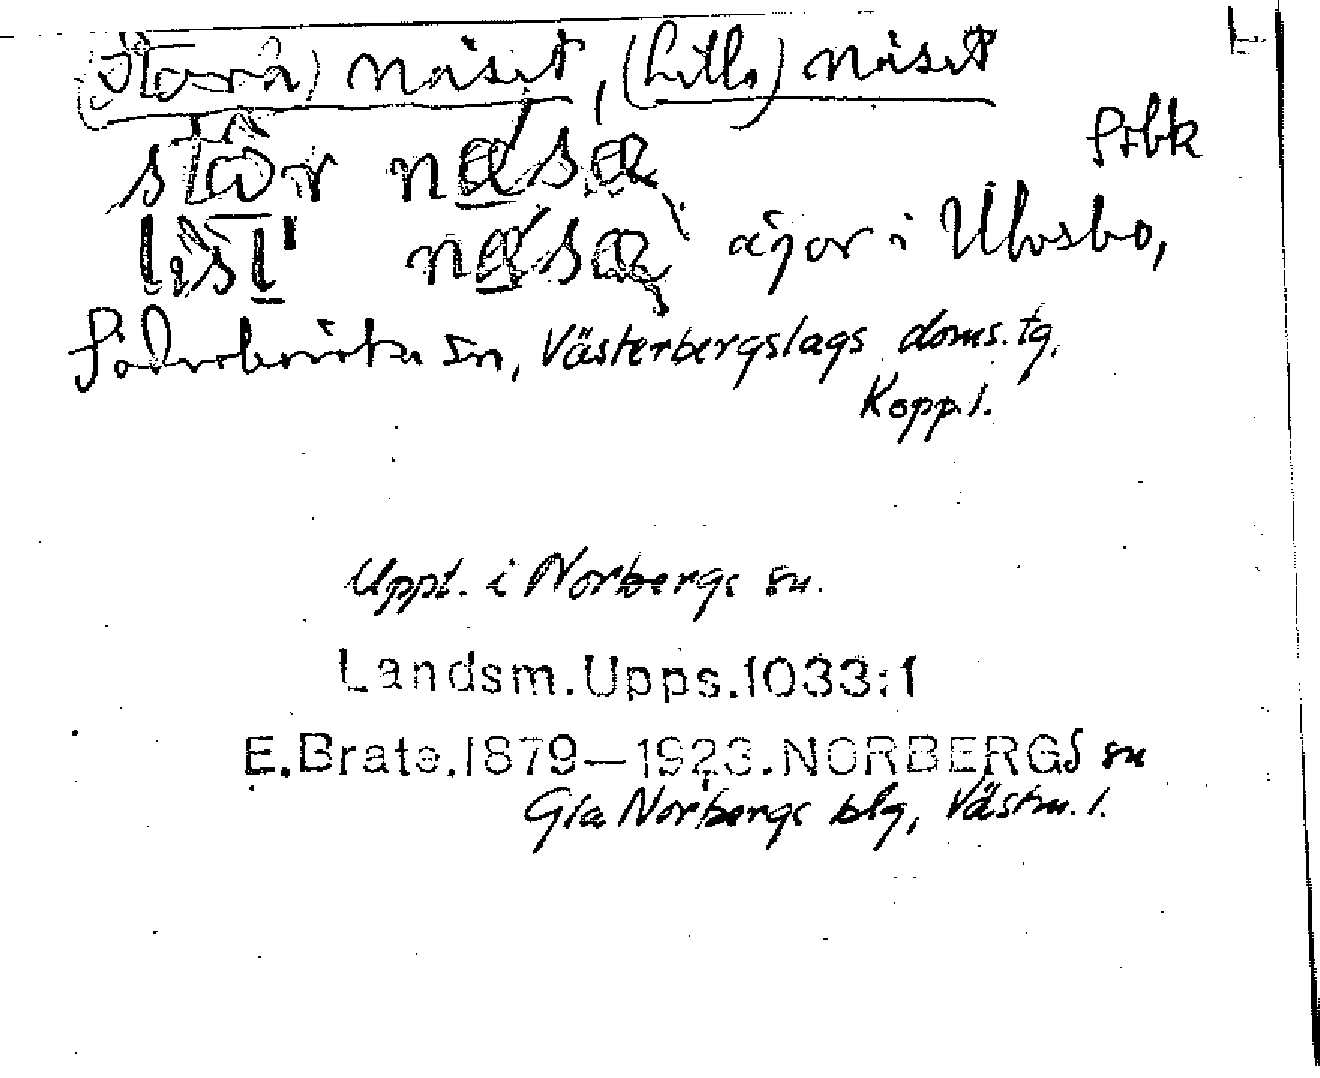 (Stora) näset, (Lilla) näset
Sbk
stor näsa
lisl näsa, ägor i Ulvsbo,
Söderbärke sn, Västerbergslags doms. tg.
Kopp. l.
Uppt. i Norbergs sn.
Landsm. Upps. 1033:1
E. Brate. 1879–1923. NORBERGS sn
Gla Norbergs blg, Västm. l.